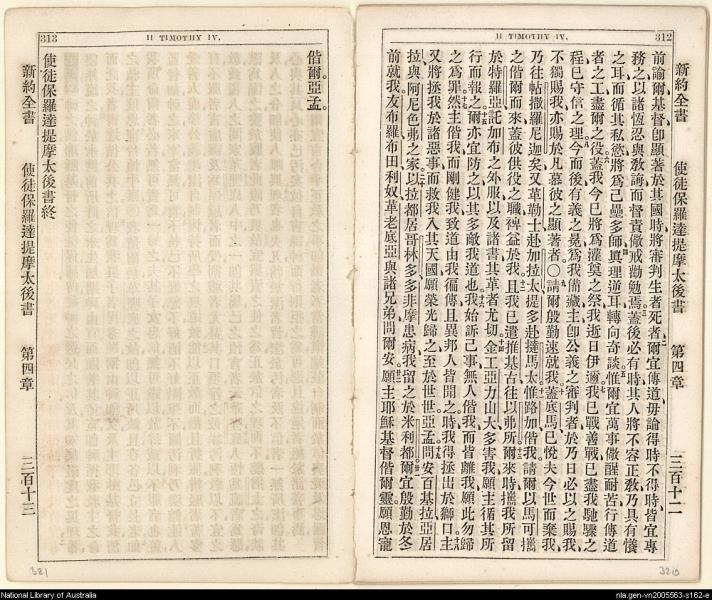 312
II TIMOTHY IV.
新約全書 使徒保羅達提摩太後書 第四章 三百十二
前諭爾基督卽顯著於其國時將審判生者死者爾宜傳道毋論得時不得時皆宜專
務之以諸恆忍與敎誨而督責儆戒勸勉焉蓋後必有時其人將不容正敎乃具有
之耳而循其私慾將爲己壘多師眞理逆耳轉向奇談惟爾宜萬事儆醒耐苦行傳道
者之工盡爾之役蓋我今已將爲灌奠之祭我逝日伊邇我已戰善戰已盡我馳驟之
程已守信之理今而後有義之冕爲我備藏主卽公義之審判者於乃日必以之賜我
不獨賜我亦賜於凡慕彼之顯著者〇請爾殷勤速就我蓋底馬已悅夫今世而棄我
乃往帖撒羅尼迦矣又革勒士赴加拉太提多赴撻馬太惟路加偕我請爾以馬可攜
之偕爾而來蓋彼供役之職裨益於我且我已遣推基古往以弗所爾來時攜我所留
於特羅亞託加布之外服以及諸書其革者尤切金工亞力山大多害我願主循其所
行而報之爾亦宜防之以其多敵我道也我始訴己事無人偕我而皆離我願此勿歸
之爲罪然主偕我而剛健我致道由我徧傳且異邦人皆聞之時我得拯出於獅口主
又將拯我於諸惡事而救我入其天國願榮光歸之至於世世亞孟問安百基拉亞居
拉與阿尼色弗之家以拉都居哥林多多非摩患病我留之於米利都爾宜殷勤於冬
前就我友布羅布田利奴革老底亞與諸兄弟問爾安願主耶穌基督偕爾靈願恩寵
313
II TIMOTHY IV.
偕爾亞孟
使徒保羅達提摩太後書終
新約全書 使徒保羅達提摩太後書 第四章 三百十三
321
National Library of Australia
nla.gen-vn2005563-s162-e